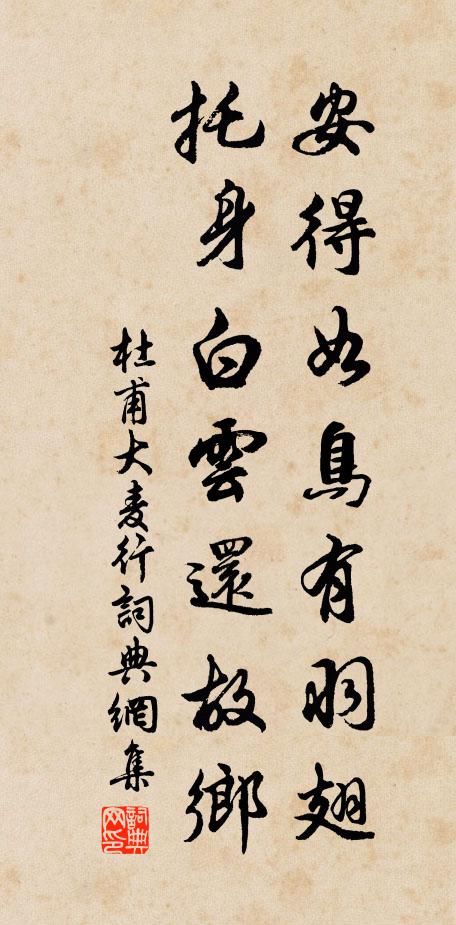 安得如鳥有羽翅
托身白雲還故鄉
杜甫大麦行詞典網集
詞典网印